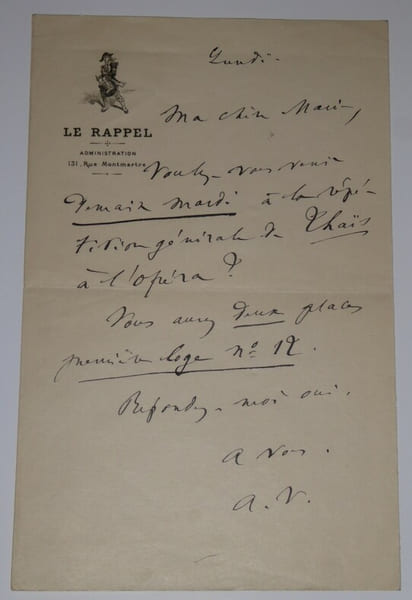 Lundi.
LE RAPPEL
ADMINISTRATION
131, Rue Montmartre
Ma chère Marie,
Voulez-vous venir
demain mardi à la répé-
tition générale de Thaïs
à l'Opéra ?
Vous aurez deux places
première loge n° 12.
Répondez-moi oui.
A vous.
A. V.